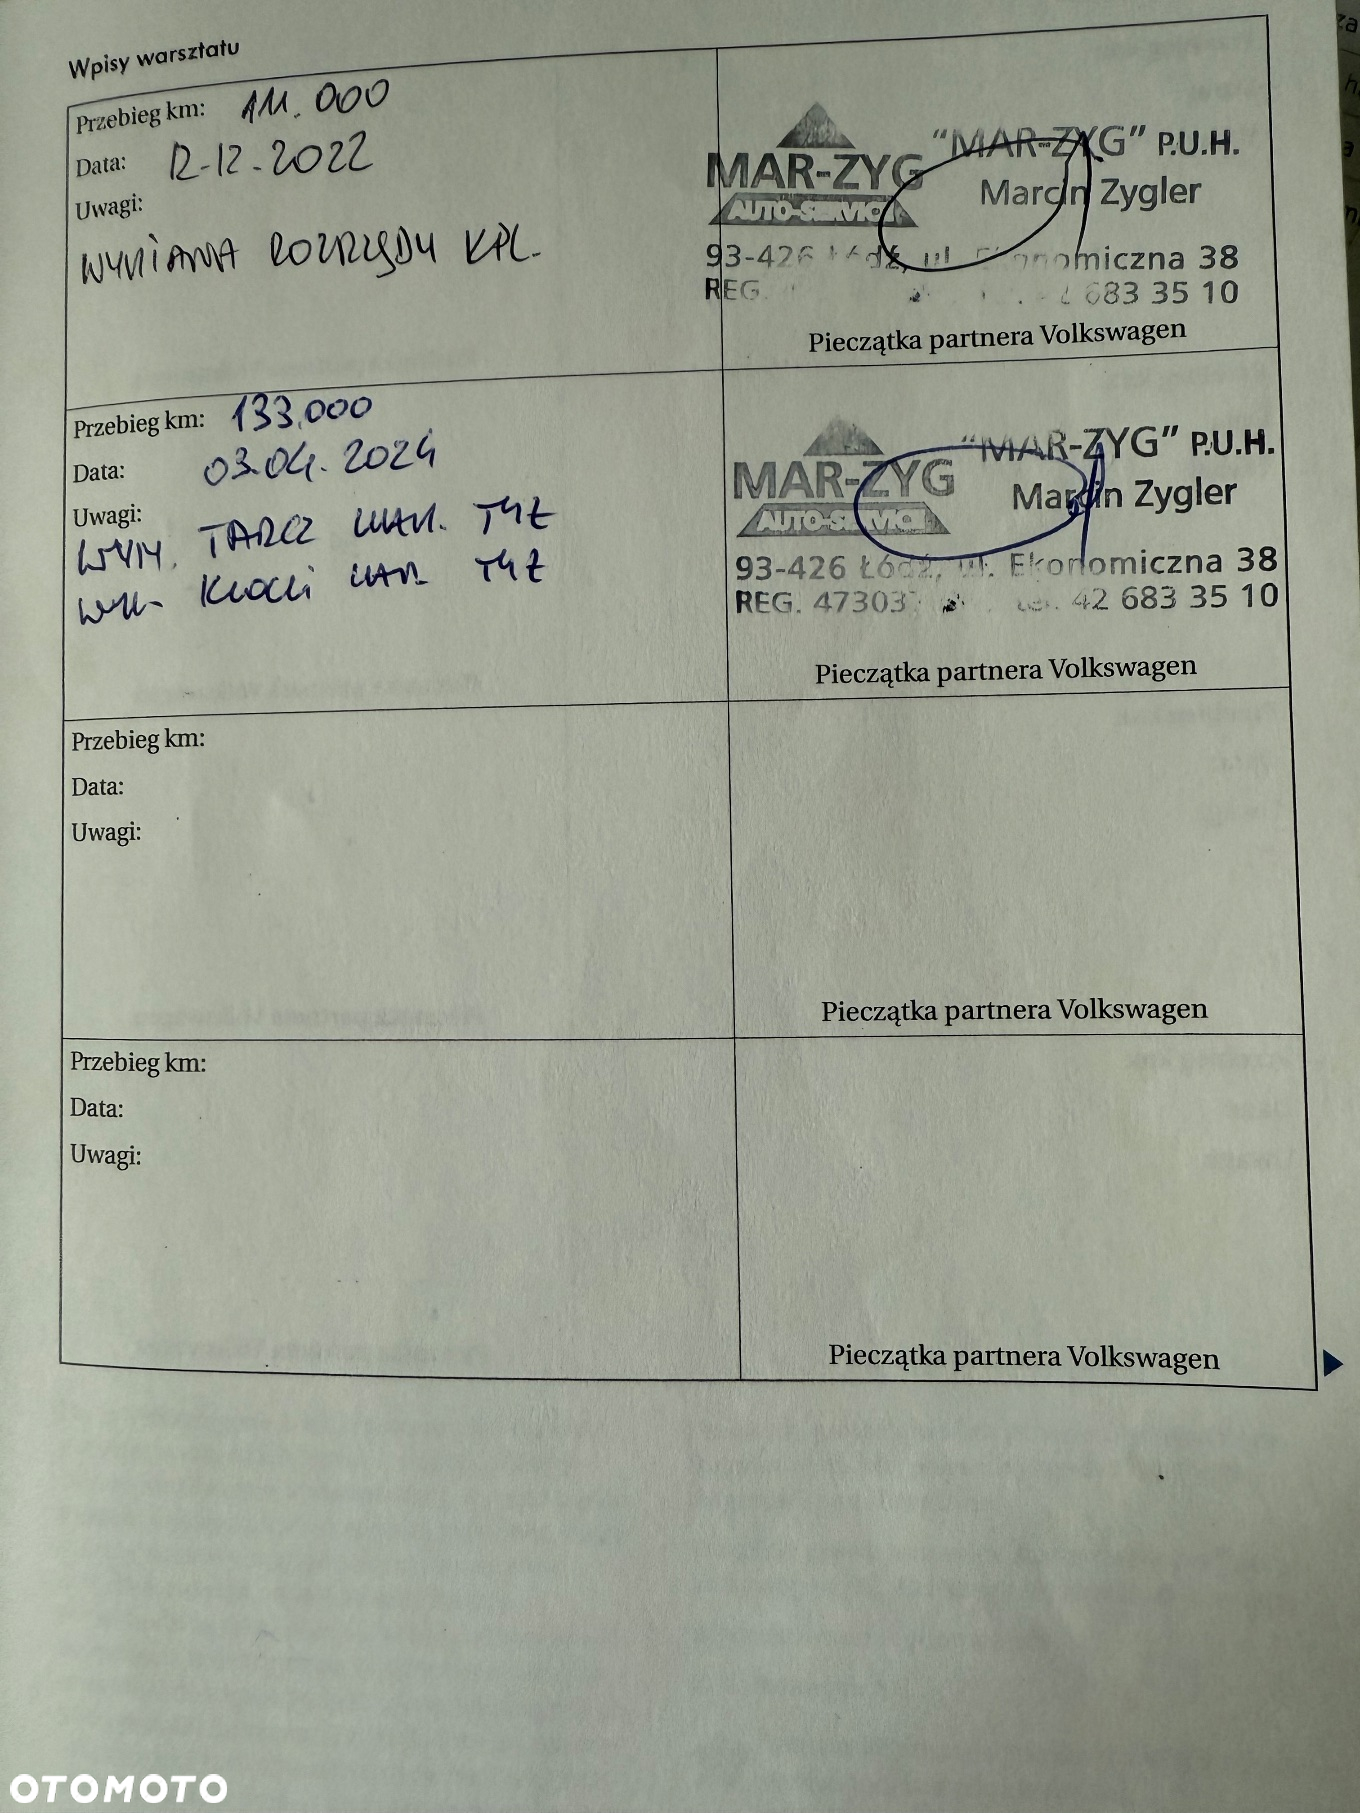 Wpisy warsztatu
Przebieg km: 111.000
Data: 12-12-2022
Uwagi:
WYMIANA ROZRZĄDU KPL.
MAR-ZYG
AUTO-SERVICE
"MAR-ZYG" P.U.H.
Marcin Zygler
93-426 Łódź, ul. Ekonomiczna 38
REG. 42 683 35 10
Pieczątka partnera Volkswagen
Przebieg km: 133.000
Data: 03.04.2024
Uwagi:
WYM. TARCZ HAM. TYŁ
WYM. KLOCKI HAM. TYŁ
MAR-ZYG
AUTO-SERVICE
"MAR-ZYG" P.U.H.
Marcin Zygler
93-426 Łódź, ul. Ekonomiczna 38
REG. 47303 tel. 42 683 35 10
Pieczątka partnera Volkswagen
Przebieg km:
Data:
Uwagi:
Pieczątka partnera Volkswagen
Przebieg km:
Data:
Uwagi:
Pieczątka partnera Volkswagen
OTOMOTO